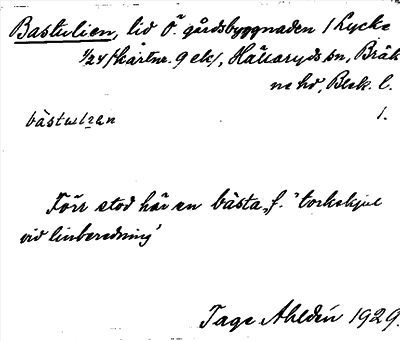 Bastulien, lid Ö. gårdsbyggnaden / Lycke
1/24 / kartnr. 9 ek/, Hällaryds sn, Bräk
ne hd, Blek. l.
1.
bàstulı̣en
Förr stod här en bàsta, f. 'torkskjul
vid linberedning'
Tage Ahldén 1929.